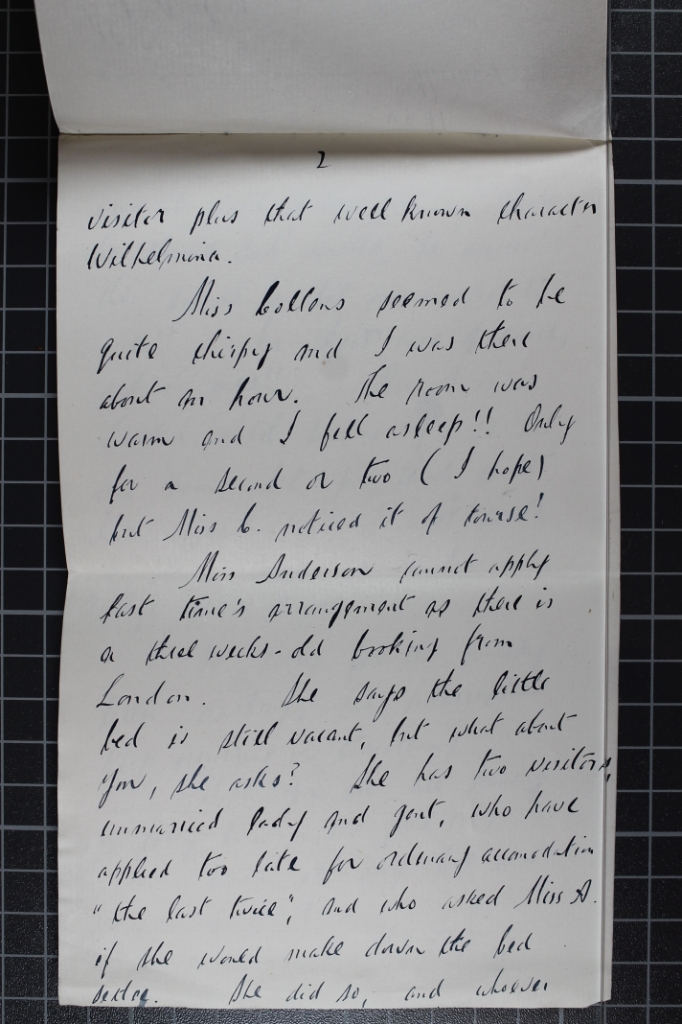 2
visitor plus that well known character
Wilhelmina.
Miss Collons seemed to be
quite chirpy and I was there
about an hour. The room was
warm and I fell asleep!! Only
for a second or two (I hope)
but Miss C. noticed it of course!
Miss Anderson cannot apply
last time's arrangement as there is
a three weeks-old booking from
London. She says the little
bed is still vacant, but what about
you, she asks? She has two visitors,
unmarried lady and gent, who have
applied too late for ordinary accomodation
"the last twice", and who asked Miss A.
if she would make down the bed
settee. She did so, and whoever